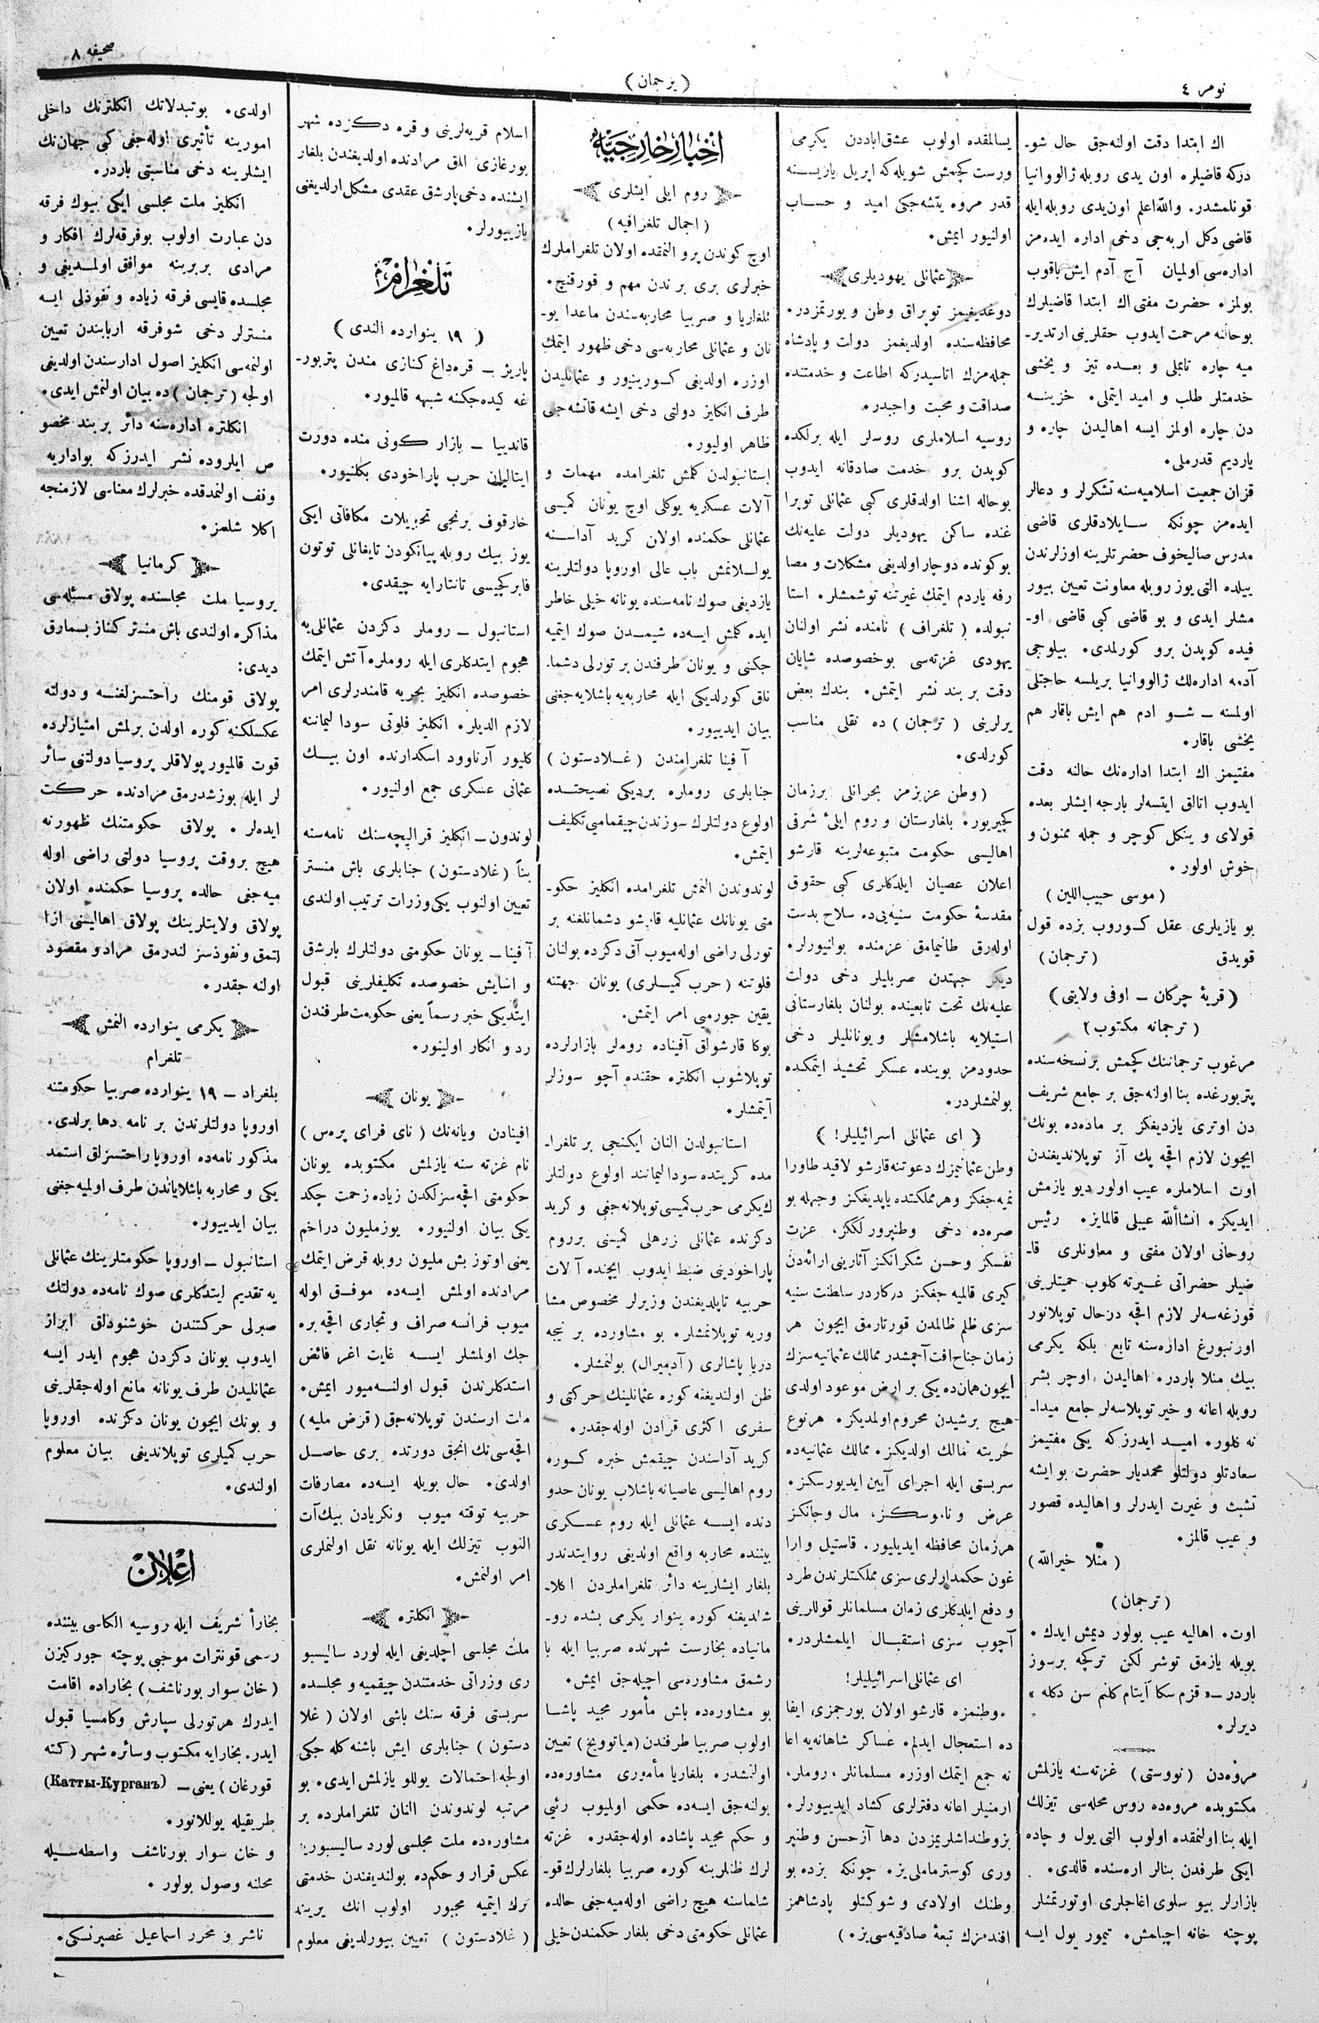 نومر ٤
( ترجمان )
صحیفه ٨
اك ابتدا دقت اولنه‌جق حال شو-
دركه قاضیلره اون یدی روبله ژالووانیا
قونلمشدر. والله اعلم اون‌یدی روبله‌ایله
قاضی دكل اربه‌جی دخی اداره ایده‌مز
اداره‌سی اولمیان آج آدم ایش باقوب
بولمز. حضرت مفتی اك ابتدا قاضیلرك
بوحالنه مرحمت ایدوب حقلرینی ارتدیر-
میه چاره تاپملی و بعده تیز و یخشی
خدمتلر طلب و امید ایتملی. خزینه
دن چاره اولمز ایسه اهالیدن چاره و
یاردیم قدرملی.
قزان جمعیت اسلامیه‌سنه تشكرلر و دعالر
ایده‌مز چونكه سایلادقلری قاضی
مدرس صالیخوف حضرتلرینه اوزلرندن
ییلده التی یوز روبله معاونت تعیین بیور
مشلر ایدی و بو قاضی كبی قاضی او-
فیده كوپدن برو كورلمدی. بیلوجی
آدمه اداره‌لك ژالووانیا بریلسه حاجتلی
اولمسنه — شو ادم هم ایش باقار هم
یخشی باقار.
مفتیمز اك ابتدا اداره‌نك حالنه دقت
ایدوب اتالق ایتسه‌لر بارجه ایشلر بعده
قولای و ینكل كوچر و جمله ممنون و
خوش اولور.
( موسی حبیب‌اللین )
بو یازیلری عقل كوروب بزده قول
قویدق ( ترجمان )
( قریهٔ چركان — اوفی ولایتی )
( ترجمانه مكتوب )
مرغوب ترجماننك كچمش برنسخه‌سنده
پتربورغده بنا اولنه‌جق بر جامع شریف
دن اوتری یازدیغكز بر ماده‌ده بونك
ایچون لازم اقچه پك آز توپلاندیغندن
اوت اسلاملره عیب اولور دیو یازمش
ایدیكز. انشأالله عیبلی قالمایز. رئیس
روحانی اولان مفتی و معاونلری قا-
ضیلر حضراتی غیرته كلوب حمیتلرینی
قوزغه‌سه‌لر لازم اقچه درحال توپلانور
اورنبورغ اداره‌سنه تابع بلكه یكرمی
بیك منلا باردر. اهالیدن اوچر بشر
روبله اعانه و خیر توپلاسه‌لر جامع میدا-
نه كلور. امید ایدرزكه یكی مفتیمز
سعادتلو دولتلو محمدیار حضرت بو ایشه
تشبث و غیرت ایدرلر و اهالیده قصور
و عیب قالمز.
( منلا خیرالله )
( ترجمان )
اوت. اهالیه عیب بولور دیمش ایدك.
بویله یازمق توشر لكن تركچه برسوز
باردر —« قزم سكا آیتام كلنم سن دكله »
دیرلر.
مروه‌دن ( نووستی ) غزته‌سنه یازلمش
مكتوبده مروه‌ده روس محله‌سی تیزلك
ایله بنا اولنمقده اولوب التی یول و جاده
ایكی طرفدن بنالر اره‌سنده قالدی.
بازارلر بیو سلوی اغاجلری اوتورتمشلر
پوچته خانه اچیامش. تیمور یول ایسه
یسالمقده اولوب عشق‌اباددن یكرمی
ورست كچمش شویله‌كه اپریل یاریسنه
قدر مروه یتشه‌جكی امید و حساب
اولنیور ایمش.
عثمانلی یهودیلری
دوغدیغیمز توپراق وطن و یورتمزدر.
محافظه‌سنده اولدیغمز دولت و پادشاه
جمله‌مزك اتاسیدركه اطاعت و خدمتنده
صداقت و محبت واجبدر.
روسیه اسلاملری روسلر ایله برلكده
كوپدن برو خدمت صادقانه ایدوب
بوحاله اشنا اولدقلری كبی عثمانلی توپرا
غنده ساكن یهودیلر دولت علیه‌نك
بوكونده دوچار اولدیغی مشكلات و مصا
رفه یاردم ایتمك غیرتنه توشمشلر. استا
نبولده ( تلغراف ) نامنده نشر اولنان
یهودی غزته‌سی بوخصوصده شایان
دقت بر بند نشر ایتمش. بندك بعض
یرلرینی ( ترجمان ) ده نقلی مناسب
كورلدی.
( وطن عزیزمز بحرانلی برزمان
كچیریور. بلغارستان و روم ایلیٔ شرقی
اهالیسی حكومت متبوعه‌لرینه قارشو
اعلان عصیان ایلدكلری كبی حقوق
مقدسهٔ حكومت سنیه‌یی‌ده سلاح بدست
اوله‌رق طانیمامق عزمنده بولنیورلر.
دیكر جهتدن صربلیلر دخی دولت
علیه‌نك تحت تابعینده بولنان بلغارستانی
استیلایه باشلامشلر و یونانلیلر دخی
حدودمز بوینده عسكر تحشید ایتمكده
بولنمشلردر.
( ای عثمانلی اسرائیلیلر! )
وطن عثمانیمزك دعوتنه قارشو لاقید طاورا
نمیه‌جغكز وهر مملكتده یاپدیغكز وجهله بو
صره‌ده دخی وطنپرور لككز، عزت
نفسكز و حسن شكرانكز آثارینی ارائه‌دن
كیری قالمیه جغكز دركاردر سلطنت سنیه
سزی ظلم ظالمدن قورتارمق ایچون هر
زمان جناح رأفت آچمشدر ممالك عثمانیه سزك
ایچون همان ده یكی بر ارض موعود اولدی
هیچ برشیدن محروم اولمدیكز. هرنوع
حریته مالك اولدیكز. ممالك عثمانیه‌ده
سربستی ایله اجرای آیین ایدیورسكز.
عرض و ناموسكز، مال و جانكز
هرزمان محافظه ایدیلیور. قاستیل و ارا
غون حكمدارلری سزی مملكتلرندن طرد
و دفع ایلدكلری زمان مسلمانلر قوللرینی
آچوب سزی استقبال ایلمشلردر.
ای عثمانلی اسرائیلیلر!
وطنمزه قارشو اولان بورجمزی ایفا
ده استعجال ایدلم. عساكر شاهانه‌یه اعا
نه جمع ایتمك اوزره مسلمانلر، روملر،
ارمنیلر اعانه دفترلری كشاد ایدییورلر.
بزوطنداشلریمزدن دها آزحسن وطنپر
وری كوسترماملی‌یز. چونكه بزده بو
وطنك اولادی و شوكتلو پادشاهمز
افندمزك تبعهٔ صادقه‌سی‌یز. )
اخبار خارجیه
روم ایلی ایشلری
( اجمال تلغرافیه )
اوچ كوندن برو النمقده اولان تلغراملرك
خبرلری بری برندن مهم و قورقنچ.
بلغاریا و صربیا محاربه‌سندن ماعدا یو-
نان و عثمانلی محاربه‌سی دخی ظهور ایتمك
اوزره اولدیغی كورینور و عثمانلیدن
طرف انكلیز دولتی دخی ایشه قاتشه‌جی
ظاهر اولیور.
استانبولدن كلمش تلغرامده مهمات و
آلات عسكریه یوكلی اوچ یونان كمیسی
عثمانلی حكمنده اولان كرید آداسنه
یوللانمش باب عالی اوروپا دولتلرینه
یازدیغی صوك نامه‌سنده یونانه خیلی خاطر
ایده كلمش ایسه‌ده شیمدن صوك ایتمیه
جكنی و یونان طرفندن بر تورلی دشما.
نلق كورلدیكی ایله محاربه‌یه باشلایه‌جغنی
بیان ایدییور.
آفینا تلغرامندن ( غلادستون )
جنابلری روملره بردیكی نصیحتده
اولوع دولتلرك سوزندن چیقمامیی تكلیف
ایتمش.
لوندوندن النمش تلغرامده انكلیز حكو-
متی یونانك عثمانلیه قارشو دشمانلغنه بر
تورلی راضی اوله‌میوب آق دكزده بولنان
فلوتنه ( حرب كمیلری ) یونان جهتنه
یقین جورمی امر ایتمش.
بوكا قارشولق آفیناده روملر بازارلرده
توپلاشوب انكلتره حقنده آچو سوزلر
آیتمشلر.
استانبولدن النان ایكنجی بر تلغرا-
مده كریتده سودا لیمانند اولوع دولتلر
ك یكرمی حرب كمیسی توپلانه‌جغی و كرید
دكزنده عثمانلی زرهلی كمیسی برروم
پاراخودینی ضبط ایدوب ایچنده آلات
حربیه تاپلدیغندن وزیرلر مخصوص مشا
وریه توپلانمشلر. بو مشاورده بر نیجه
دریا پاشالری ( آدمیرال ) بولنمشلر.
ظن اولندیغنه كوره عثمانلینك حركتی و
سفری اكثری قرادن اوله‌جقدر.
كرید آداسندن چیقمش خبره كوره
روم اهالیسی عاصیانه باشلاب یونان حدو
دنده ایسه عثمانلی ایله روم عسكری
بیننده محاربه واقع اولدیغی روایتدندر
بلغار ایشلرینه دائر تلغراملردن اكلا-
شلدیغنه كوره ینوار یكرمی بشده رو-
مانیاده بخارست شهرنده صربیا ایله با
رشمق مشاوره‌سی اچیله‌جق ایمش.
بو مشاوره‌ده باش مأمور مجید پاشا
اولوب صربیا طرفندن ( میاتوویچ ) تعیین
اولنشدر. بلغاریا مأموری مشاوره‌ده
بولنه‌جق ایسه‌ده حكمی اولمیوب رئیی
و حكم مجید پاشاده اوله‌جقدر. غزته
لرك ظنلرینه كوره صربیا بلغارلرك قو-
شلماسنه هیچ راضی اوله‌میه‌جغی حالده
عثمانلی حكومتی دخی بلغار حكمندن خیلی
اسلام قریه‌لرینی و قره دكزده شهر
بورغازی الق مرادنده اولدیغندن بلغار
ایشنده دخی پارشق عقدی مشكل ارلدیغی
یازییورلر.
تلغرام
( ١٩ ینوارده الندی )
پاریژ — قره‌داغ كنازی مندن پتربور-
غه كیده‌جكنه شبهه قالمیور.
قاندییا — بازار كونی منده دورت
ایتالیان حرب پاراخودی بكلنیور.
خارقوف برنجی تحویلات مكافاتی ایكی
یوز بیك روبله پیانكودن تایغانلی توتون
فابركچیسی تانتارایه چیقدی.
استانبول — روملر دكزدن عثمانلی‌یه
هجوم ایتدكلری ایله روملره آتش ایتمك
خصوصده انكلیز بحریه قامندرلری امر
لازم الدیلر. انكلیز فلوتی سودا لیماننه
كلیور آرناوود اسكدارنده اون بیك
عثمانی عسكری جمع اولنیور.
لوندون — انكلیز قرالیچه‌سنك نامه‌سنه
بنأ ( غلادستون ) جنابلری باش منستر
تعیین اولنوب یكی وزرات ترتیب اولندی
آفینا — یونان حكومتی دولتلرك بارشق
و اسایش خصوصده تكلیفلرینی قبول
ایتدیكی خبر رسماً یعنی حكومت طرفندن
رد و انكار اولینور.
یونان
افینادن ویانه‌نك ( نای فرای پره‌س )
نام غزته سنه یازلمش مكتوبده یونان
حكومتی اقچه‌سزلكدن زیاده زحمت چكد
یكی بیان اولنیور. یوزملیون دراخم
یعنی اوتوز بش ملیون روبله قرض ایتمك
مرادنده اولمش ایسه‌ده موفق اوله
میوب فرانسه صراف و تجاری اقچه بره
جك اولمشلر ایسه غایت اغر فائض
استدكلرندن قبول اولنه‌میور ایمش.
ملت ارسندن توپلانه‌جق ( قرض ملیه )
اقچه‌سی‌نك انجق دورتده بری حاصل
اولدی. حال بویله ایسه‌ده مصارفات
حربیه توقته میوب ونكریادن بیك آت
النوب تیزلك ایله یونانه نقل اولنملری
امر اولنمش.
انكلتره
ملت مجلسی اچلدیغی ایله لورد سالیسبو
ری وزراتی خدمتندن چیقمیه و مجلسده
سربستی فرقه سنك باشی اولان ( غلا
دستون ) جنابلری ایش باشنه كله جكی
اولجه احتمالات یوللو یازلمش ایدی. بو
مرتبه لوندوندن النان تلغراملرده بر
مشاوره‌ده ملت مجلسی لورد سالیسبوری
عكس قرار و حكم‌ده بولندیغندن خدمتی
ترك ایتمیه مجبور اولوب انك یرینه
( غلادستون ) تعیین بیورلدیغی معلوم
اولدی. بوتبدلاتك انكلترنك داخلی
امورینه تأثیری اوله‌جغی كبی جهان‌نك
ایشلرینه دخی مناسبتی باردر.
انكلیز ملت مجلسی ایكی بیوك فرقه
دن عبارت اولوب بوفرقه‌لرك افكار و
مرادی بربرینه موافق اولمدیغی و
مجلسده قایسی فرقه زیاده و نفوذلی ایسه
منسترلر دخی شوفرقه اربابندن تعیین
اولنمه‌سی انكلیز اصول ادارسندن اولدیغی
اولجه ( ترجمان ) ده بیان اولنمش ایدی.
انكلتره اداره‌سنه دائر بربند مخصو
ص ایلروده نشر ایدرزكه بواداریه
وقف اولنمدقده خبرلرك معناسی لازمنجه
اكلا شلمز.
كرمانیا
پروسیا ملت مجلسنده پولاق مسئله‌سی
مذاكره اولندی باش منستر كناز بسمارق
دیدی:
پولاق قومنك راحتسزلغنه و دولته
عكسلكنه كوره اولدن برلمش امتیازلرده
قوت قالمیور پولاقلر پروسیا دولتنی سائر
لر ایله بوزشدرمق مرادنده حركت
ایده‌لر. پولاق حكومتنك ظهورنه
هیچ بروقت پروسیا دولتی راضی اوله
میه‌جغی حالده پروسیا حكمنده اولان
پولاق ولایتلرینك پولاق اهالیسنی ازا
لتمق و نفوذسز لندرمق مراد و مقصود
اولنه جقدر.
یكرمی ینوارده النمش
تلغرام
بلغراد — ١٩ ینوارده صربیا حكومتنه
اوروپا دولتلرندن بر نامه دها برلدی.
مذكور نامه‌ده اوروپا راحتسزلق استمد
یكی و محاربه باشلایاندن طرف اولمیه‌جغی
بیان ایدییور.
استانبول — اوروپا حكومتلرینك عثمانلی
یه تقدیم ایتدكلری صوك نامه‌ده دولتك
صبرلی حركتندن خوشنودلق ابراز
ایدوب یونان دكزدن هجوم ایدر ایسه
عثمانلیدن طرف یونانه مانع اوله‌جقلرینی
و بونك ایچون یونان دكزنده اوروپا
حرب كمیلری توپلاندیغی بیان معلوم
اولندی.
اعلان
بخارأ شریف ایله روسیه الكاسی بیننده
رسمی قونترات موجبی پوچته جوركیزن
( خان سوار بورناشف ) بخاراده اقامت
ایدرك هرتورلی سپارش و كامسیا قبول
ایدر. بخارایه مكتوب و سائره شهر ( كته
قورغان ) یعنی — (Катты-Курганъ)
طریقیله یوللانور.
و خان سوار بورناشف واسطه‌سیله
محلنه وصول بولور.
ناشر و محرر اسماعیل غصپرنسكی.